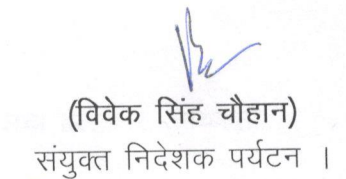 (विवेक सिंह चौहान)
संयुक्त निदेशक पर्यटन ।